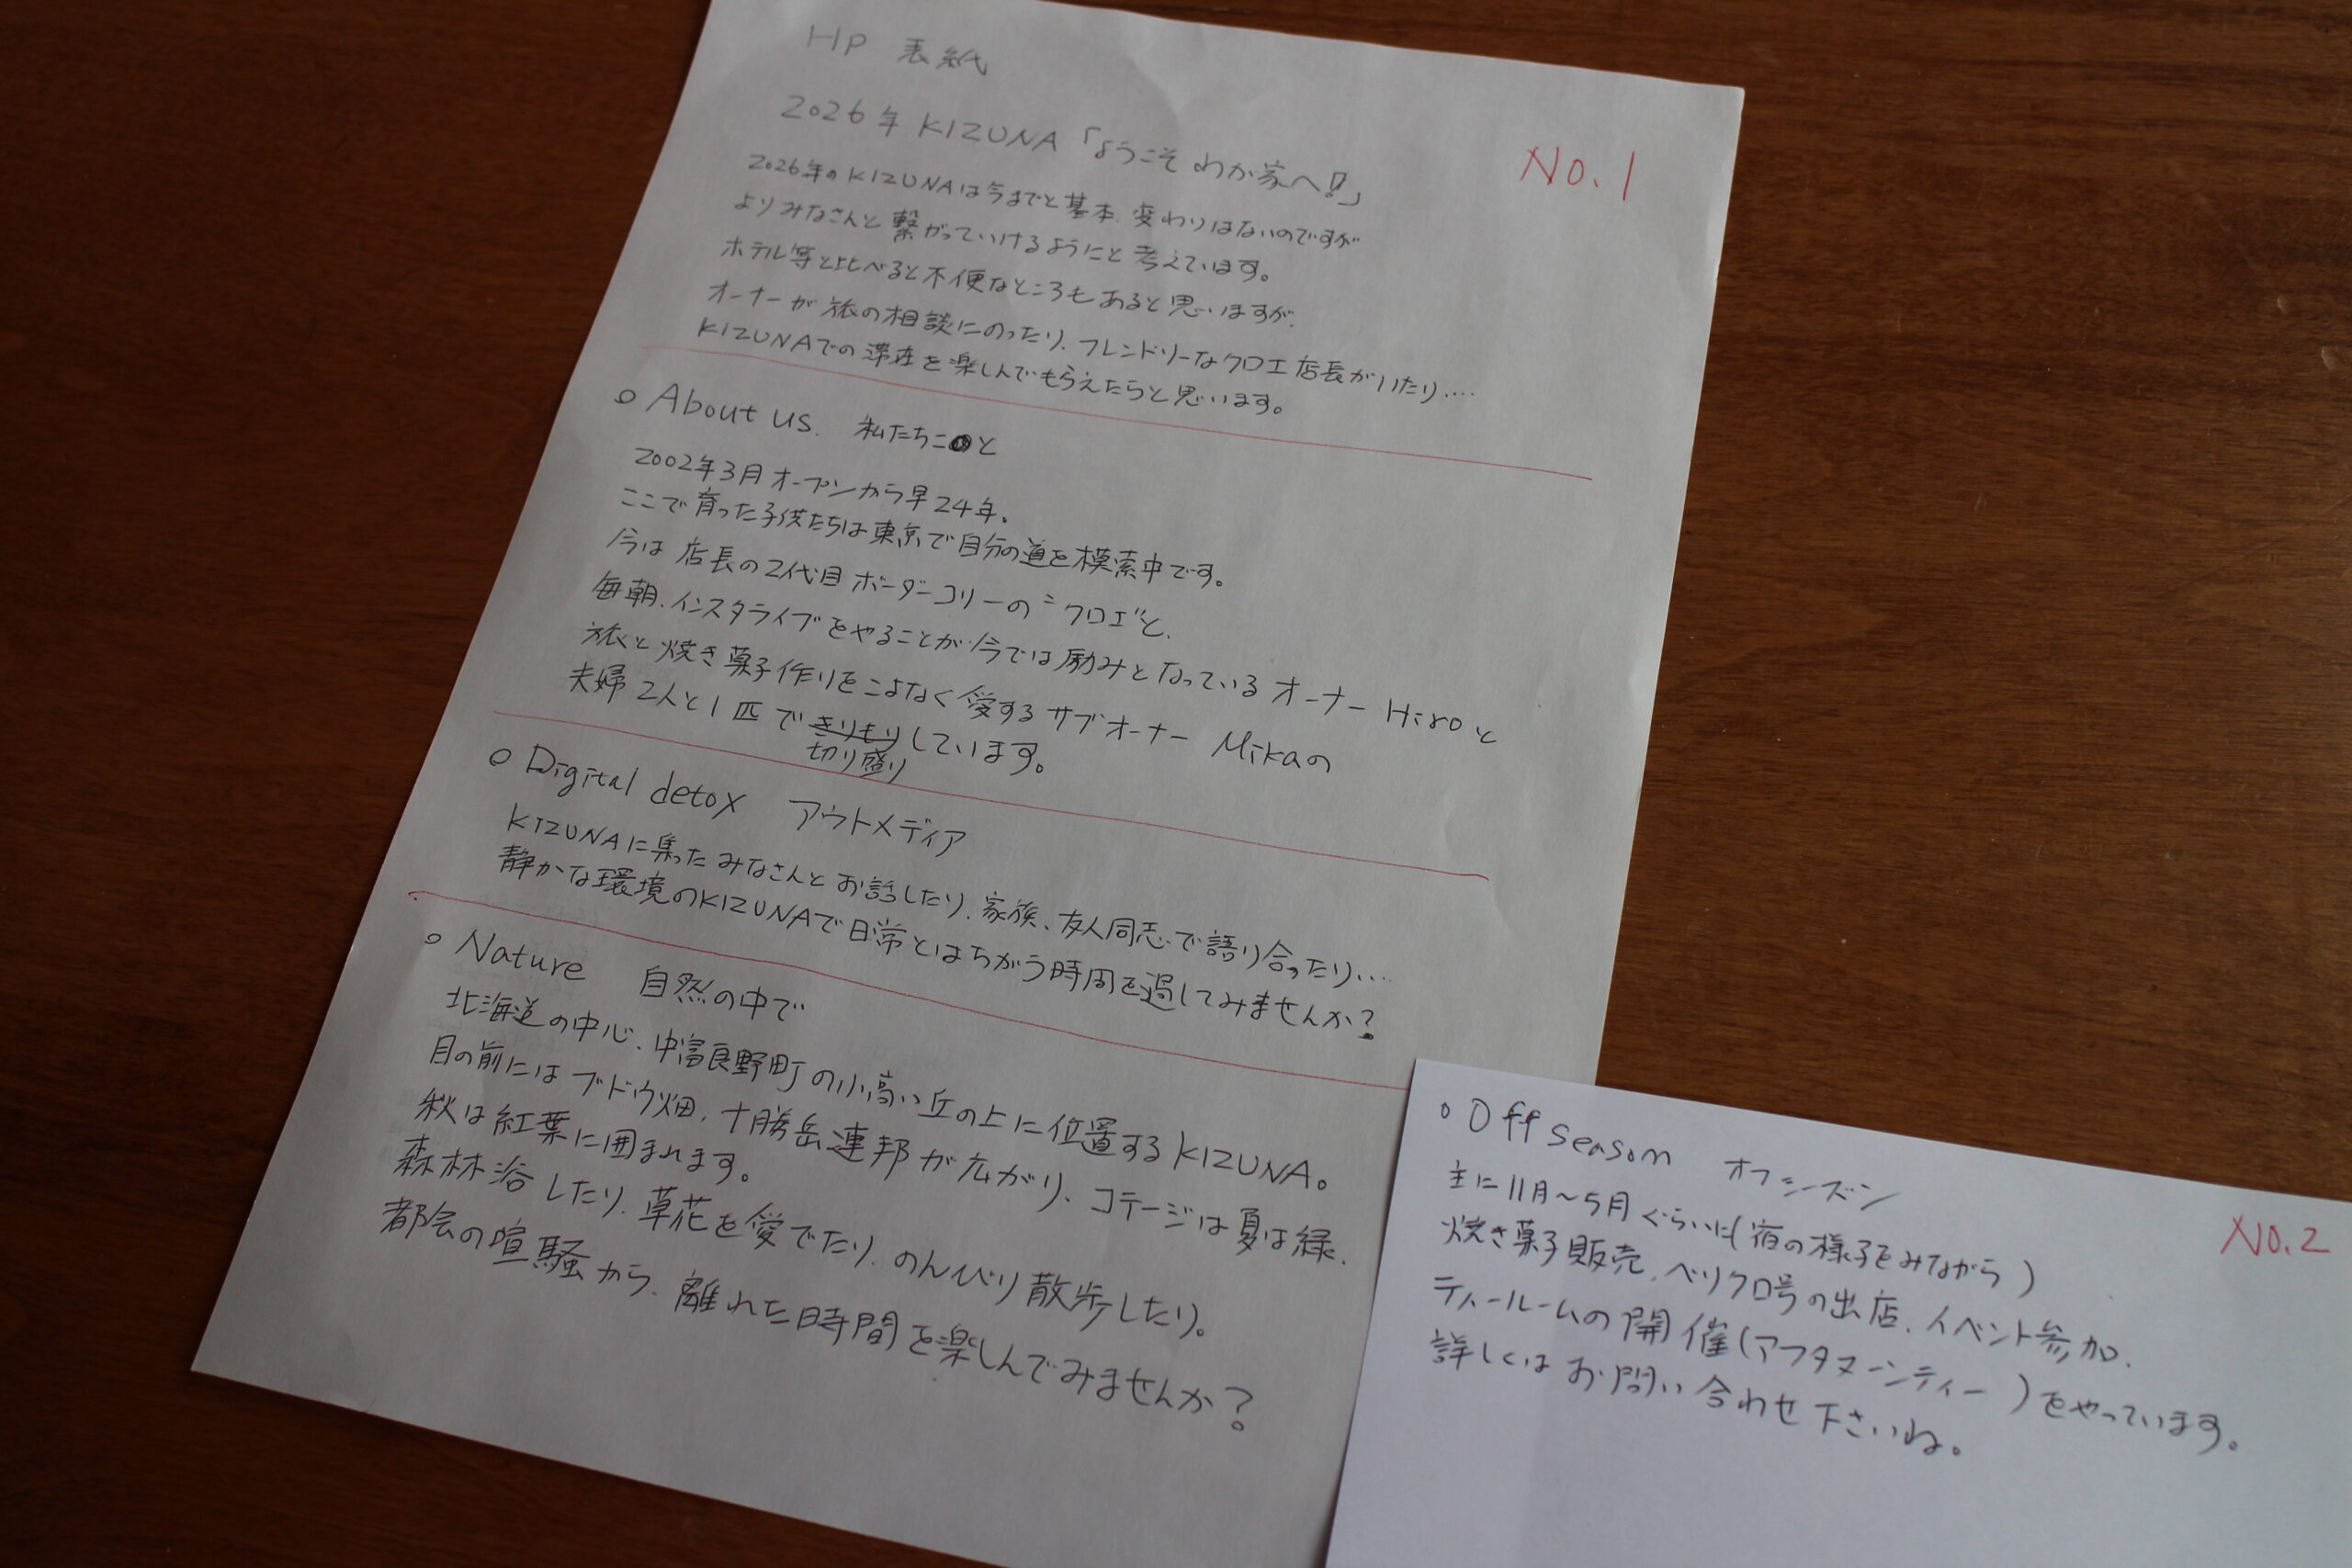 HP 表紙
No.1
2026年 KIZUNA「ようこそ わが家へ!!」
2026年のKIZUNAは今までと基本、変わりはないのですが
よりみなさんと繋がっていけるようにと考えています。
ホテル等と比べると不便なところもあると思いますが、
オーナーが旅の相談にのったり、フレンドリーなクロエ店長がいたり....
KIZUNAでの滞在を楽しんでもらえたらと思います。
○ About us. 私たちこのと
2002年3月オープンから早24年。
ここで育った子供たちは東京で自分の道を模索中です。
今は店長の2代目ボーダーコリーの"クロエ"と、
毎朝、インスタライブをやることが今では励みとなっているオーナー Hiroと
旅と焼き菓子作りをこよなく愛するサブオーナー Mikaの
夫婦2人と1匹できりもりしています。
切り盛り
○ Digital detox アウトメディア
KIZUNAに集ったみなさんとお話したり、家族、友人同志で語り合ったり....
静かな環境のKIZUNAで日常とはちがう時間を過してみませんか?
○ Nature 自然の中で
北海道の中心、中富良野町の小高い丘の上に位置するKIZUNA。
目の前にはブドウ畑、十勝岳連邦が広がり、コテージは夏は緑、
秋は紅葉に囲まれます。
森林浴したり、草花を愛でたり、のんびり散歩したり。
都会の喧騒から、離れた時間を楽しんでみませんか?
○ Off season オフシーズン
No.2
主に11月〜5月ぐらいに(宿の様子をみながら)
焼き菓子販売、ベリクロ号の出店、イベント参加、
ティールームの開催(アフタヌーンティー)をやっています。
詳しくはお問い合わせ下さいね。